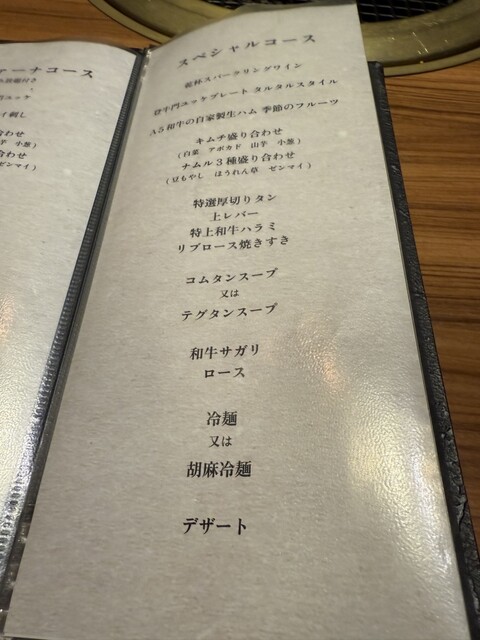 アーナコース
わせ
わせ
ゼンマイ)
スペシャルコース
乾杯スパークリングワイン
登牛門ユッケプレート タルタルスタイル
A5和牛の自家製生ハム 季節のフルーツ
キムチ盛り合わせ
(白菜 アボカド 山芋 小葱)
ナムル3種盛り合わせ
(豆もやし ほうれん草 ゼンマイ)
特選厚切りタン
上レバー
特上和牛ハラミ
リブロース焼きすき
コムタンスープ
又は
テグタンスープ
和牛サガリ
ロース
冷麺
又は
胡麻冷麺
デザート